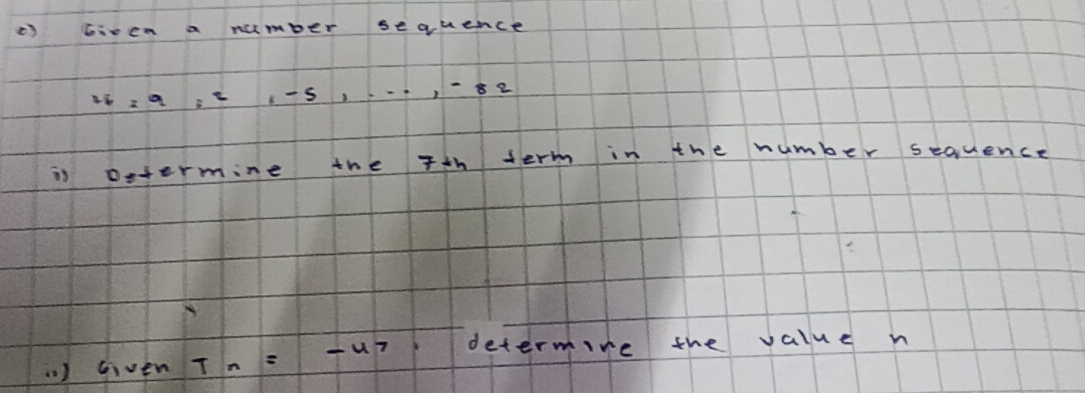 c) Given a number sequence
16 , 9 , 2 , -5 , ... , -82
i) Determine the 7th term in the number sequence
ii) Given Tn = -47. determine the value n